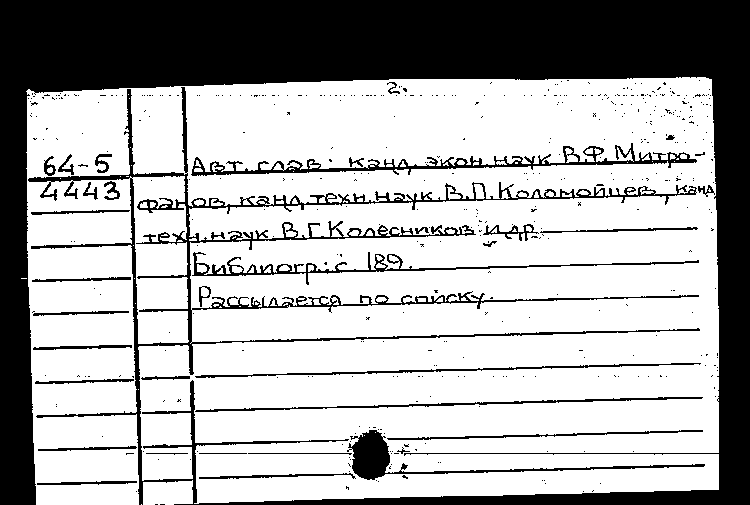 2.
64-5
4443
Авт. глав: канд. экон. наук В.Ф. Митро-
фанов, канд. техн. наук. В.П. Коломойцев, канд.
техн. наук В.Г. Колесников и др.
Библиогр.: с. 189.
Рассылается по списку.